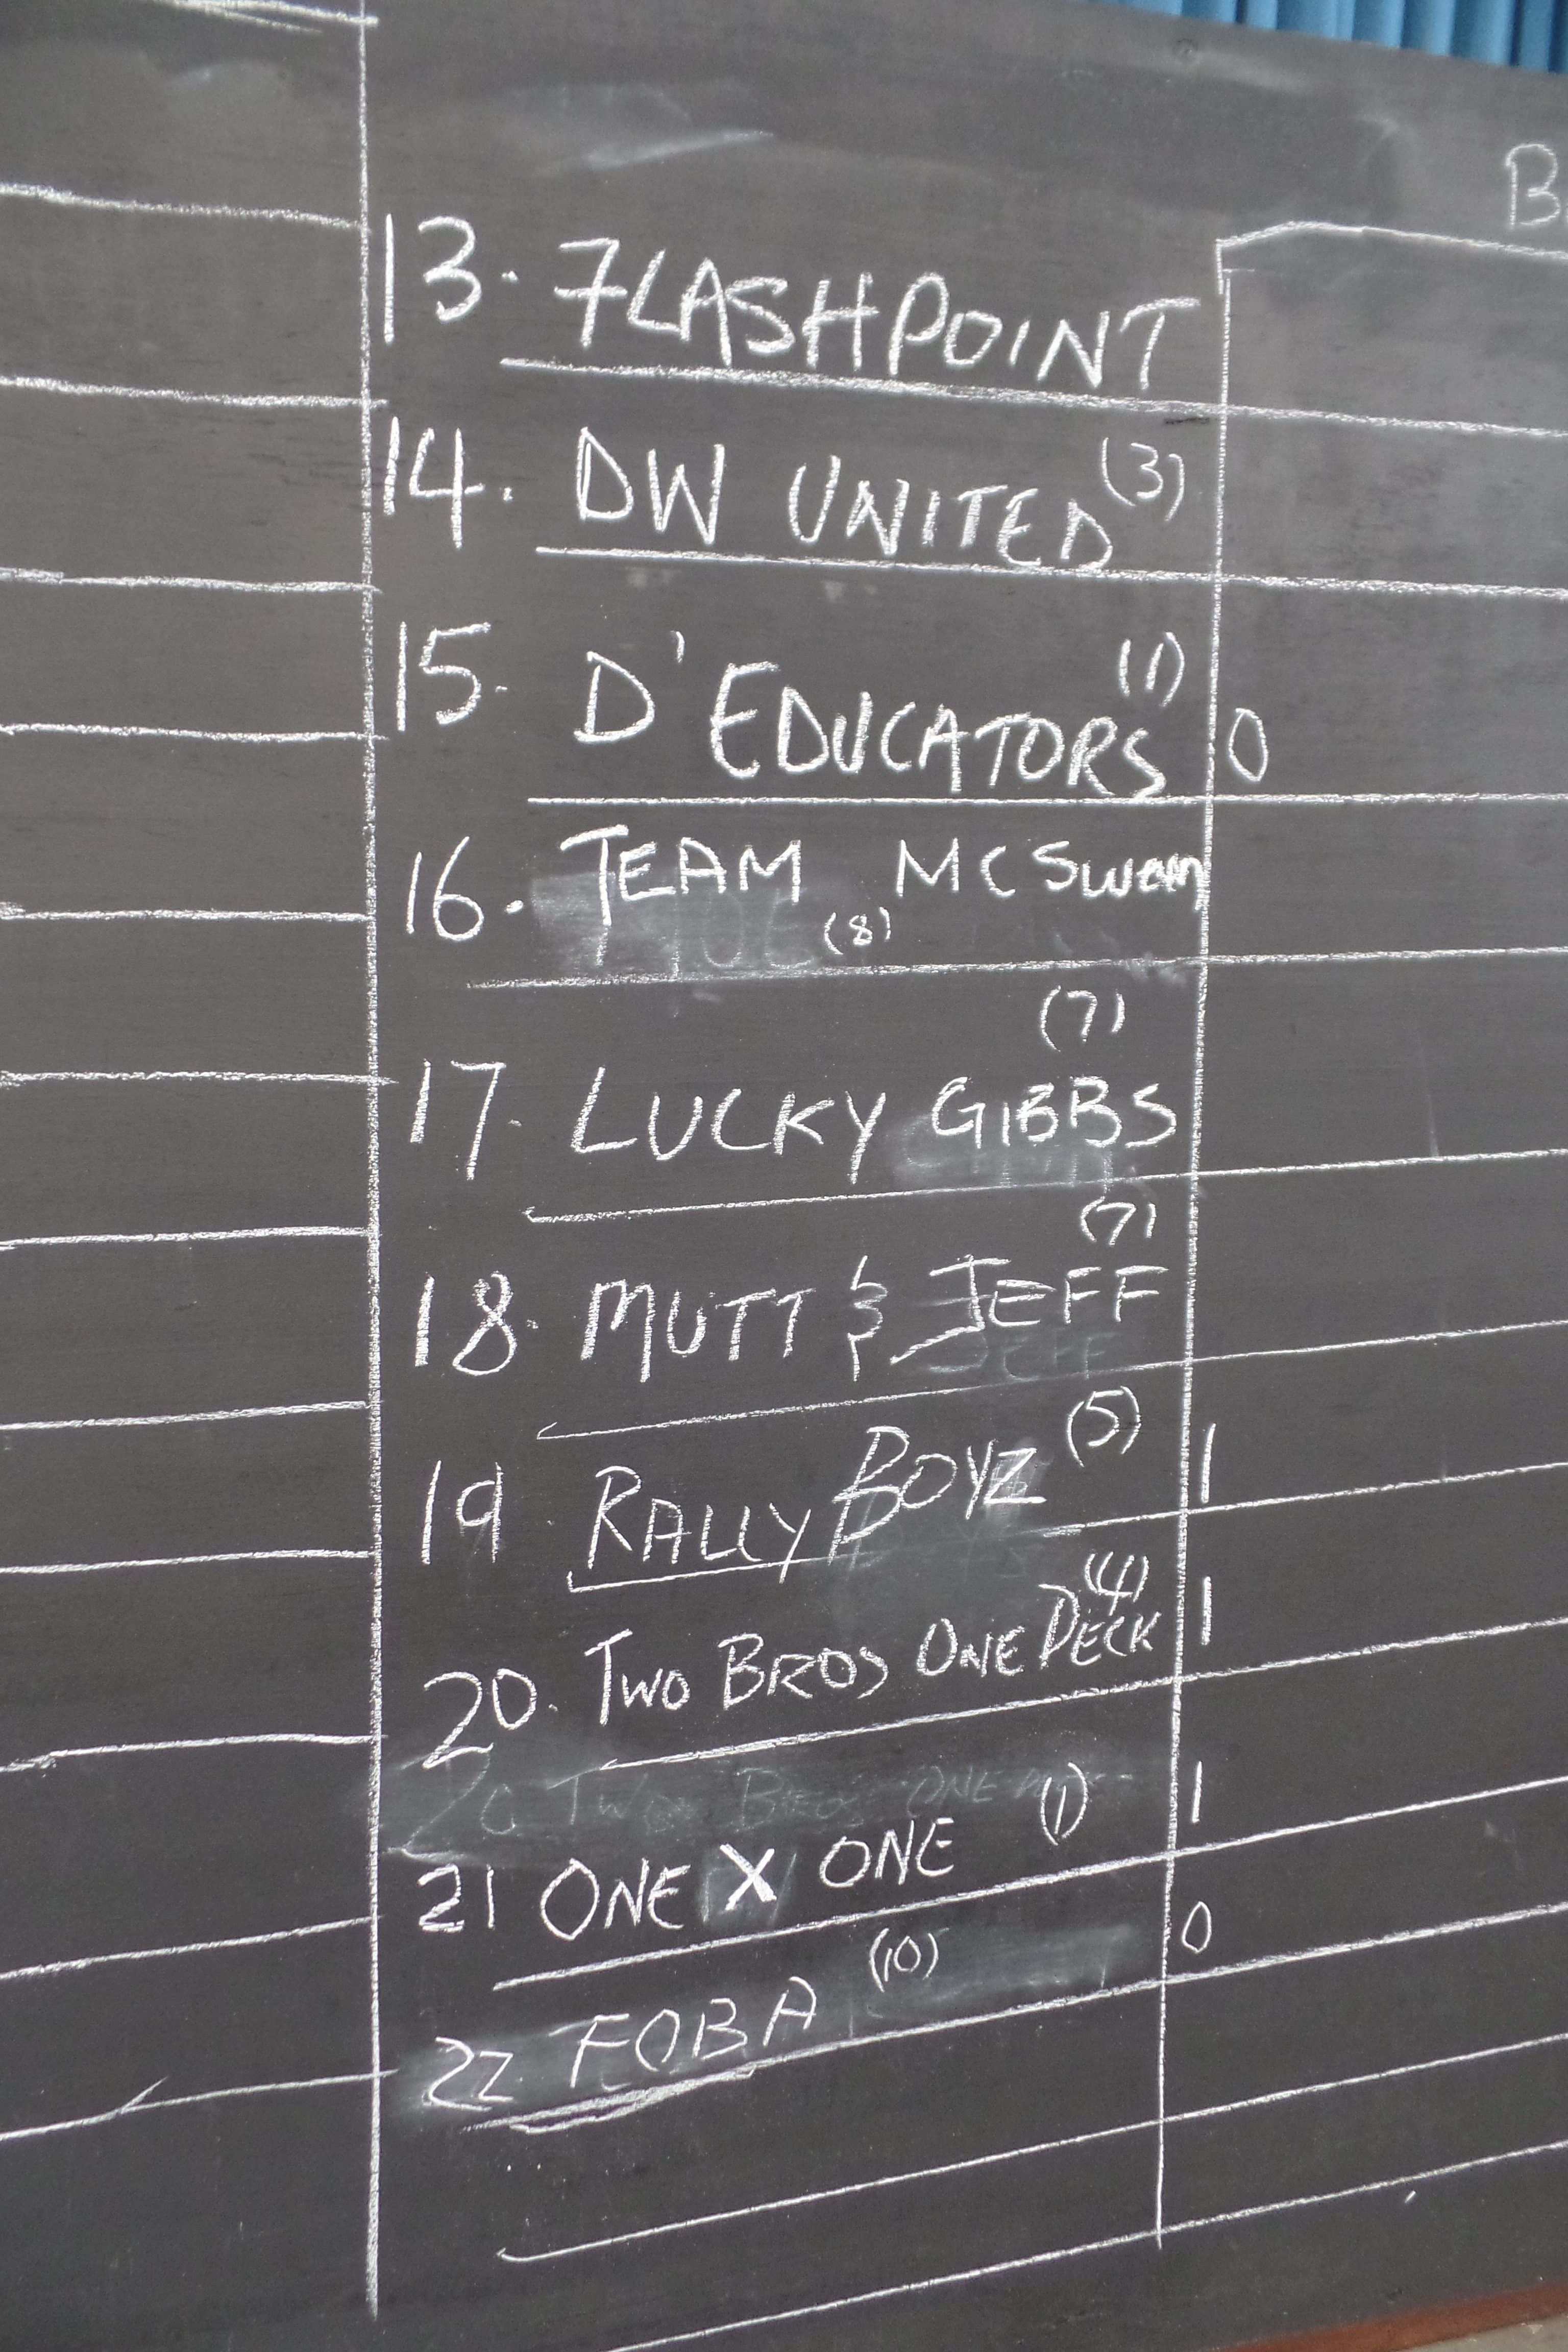 B
13. FLASHPOINT
14. DW UNITED (3)
15. D'EDUCATORS (1) 0
16. TEAM MCSwain
(8)
(7)
17. LUCKY GIBBS
(7)
18. MUTT & JEFF
19 RALLY BOYZ (5) 1
20. TWO BROS ONE DECK (4) 1
20 TWO BROS ONE
21 ONE X ONE (1) 1
22. FOBA (10) 0